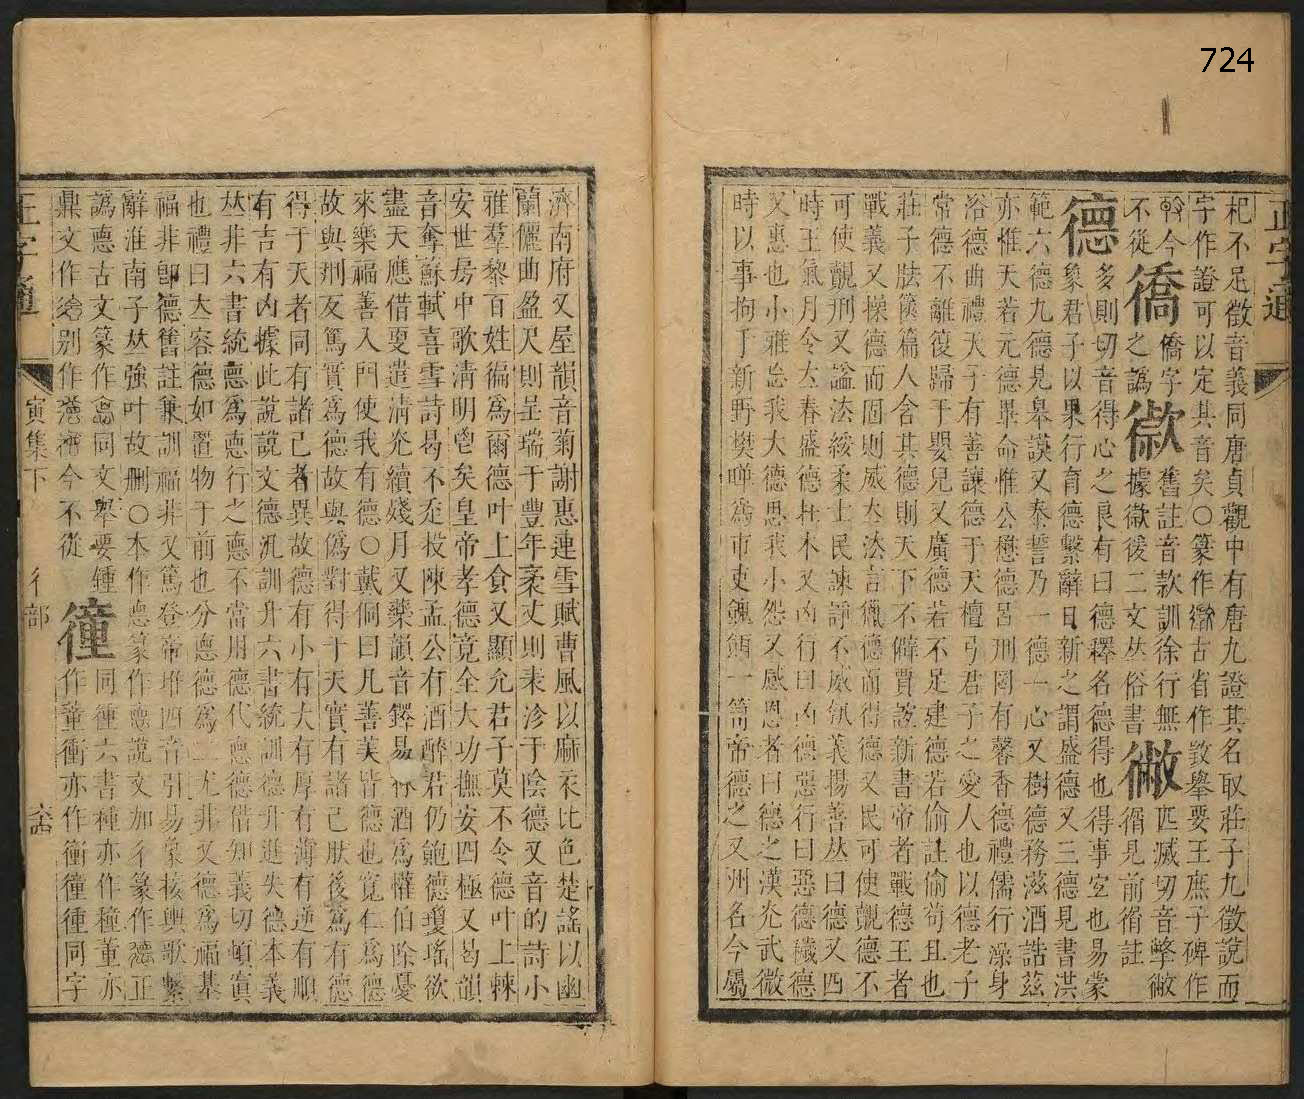 724
正字通
杞不足徵音義同唐貞觀中有唐九證其名取莊子九徵說而
字作證可以定其音矣〇篆作古省作敳舉要王庶子碑作
今舊註音款訓徐行無匹滅切音𢡱
不從 僑 僑字之譌 據徽後二文𠀤俗書 㣲見前㣲註
德 多則切音得心之良有曰德釋名德得也得事宜也易蒙
象君子以果行育德繫辭日新之謂盛德又三德見書洪
範六德九德見皋謨又泰誓乃一德一心又樹德務滋酒誥茲
亦惟天若元德畢命惟公懋德呂刑罔有馨香德禮儒行澡身
浴德曲禮天子有善讓德于天檀弓君子之愛人也以德老子
常德不離復歸于嬰兒又廣德若不足建德若偷註偷苟且也
莊子胠篋篇人含其德則天下不僻賈誼新書帝者戰德王者
戰義又操德而固則威大法言德而得德又民可使覿德不
可使覿刑又諡法綏柔士民諫諍不威執義揚善𠀤曰德又四
時王氣月令大春盛德在木又凶行曰凶德惡行曰惡德穢德
又惠也小雅忘我大德思我小怨又感恩者曰德之漢光武微
時以事拘于新野樊曄爲市吏餽餌一笥帝德之又州名今屬
濟南府又屋韻音菊謝惠連雪賦曹風以麻衣比色楚謠以幽
蘭儷曲盈尺則呈瑞于豐年袤丈則表沴于陰德又音的詩小
雅羣黎百姓徧爲爾德叶上食又顯允君子莫不令德叶上棘
安世房中歌清明鬯矣皇帝孝德竟全大功撫安四極又曷韻
音奪蘇軾喜雪詩曷不走投陳孟公有酒醉君仍飽德瓊瑤欲
盡天應借更遣清光續殘月又藥韻音鐸易林酒爲懽伯除憂
來樂福善入門使我有德〇戴侗曰凡善美皆德也寬仁爲德
故與刑反篤實爲德故與僞對得于天實有諸己肰後爲有德
得于天者同有諸己者異故德有小有大有厚有薄有逆有順
有吉有凶據此說說文德汎訓升六書統訓德升進失德本義
𠀤非六書統悳爲悳行之悳不當用德代悳德借知義切頓寘
也禮曰大容德如置物于前也分悳德爲二尤非又德爲福基
福非卽德舊註兼訓福非又篤登帝堆四音引易蒙拔輿歌繫
辭淮南子𠀤強叶故刪〇本作悳篆作說文加彳篆作正
譌悳古文篆作同文舉要
鼎文作別作今不從 𢔰 同衝六書種亦作種董亦
作董衝亦作衝𢔰種同字
正字通
寅集下
彳部